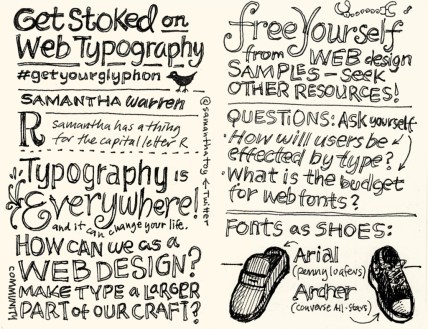 Get Stoked on
Web Typography
#getyourglyphon
SAMANTHA Warren
@samanthatoy ← Twitter
R
Samantha has a thing
for the capital letter R
Typography is
Everywhere!
and it can change your life.
HOW CAN we as a
WEB DESIGN
COMMUNITY
MAKE TYPE a LARGER
PART of OUR CRAFT?
free Yourself
from WEB design
SAMPLES — SEEK
OTHER RESOURCES!
QUESTIONS: Ask yourself
· How will users be
effected by type?
· What is the budget
for web fonts?
FONTS as SHOES:
Arial
(penny loafers)
Archer
(converse All-Stars)